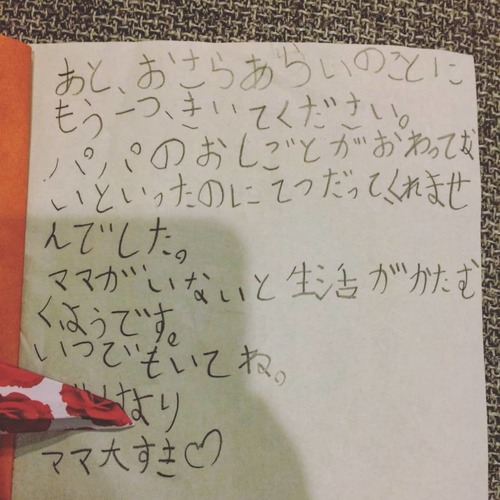 あと、おさらあらいのことに
もう一つ、きいてください。
パパのおしごとがおわってな
いといったのにてつだってくれませ
んでした。
ママがいないと生活がかたむ
くようです。
いつでもいてね。
より
ママ大すき♡